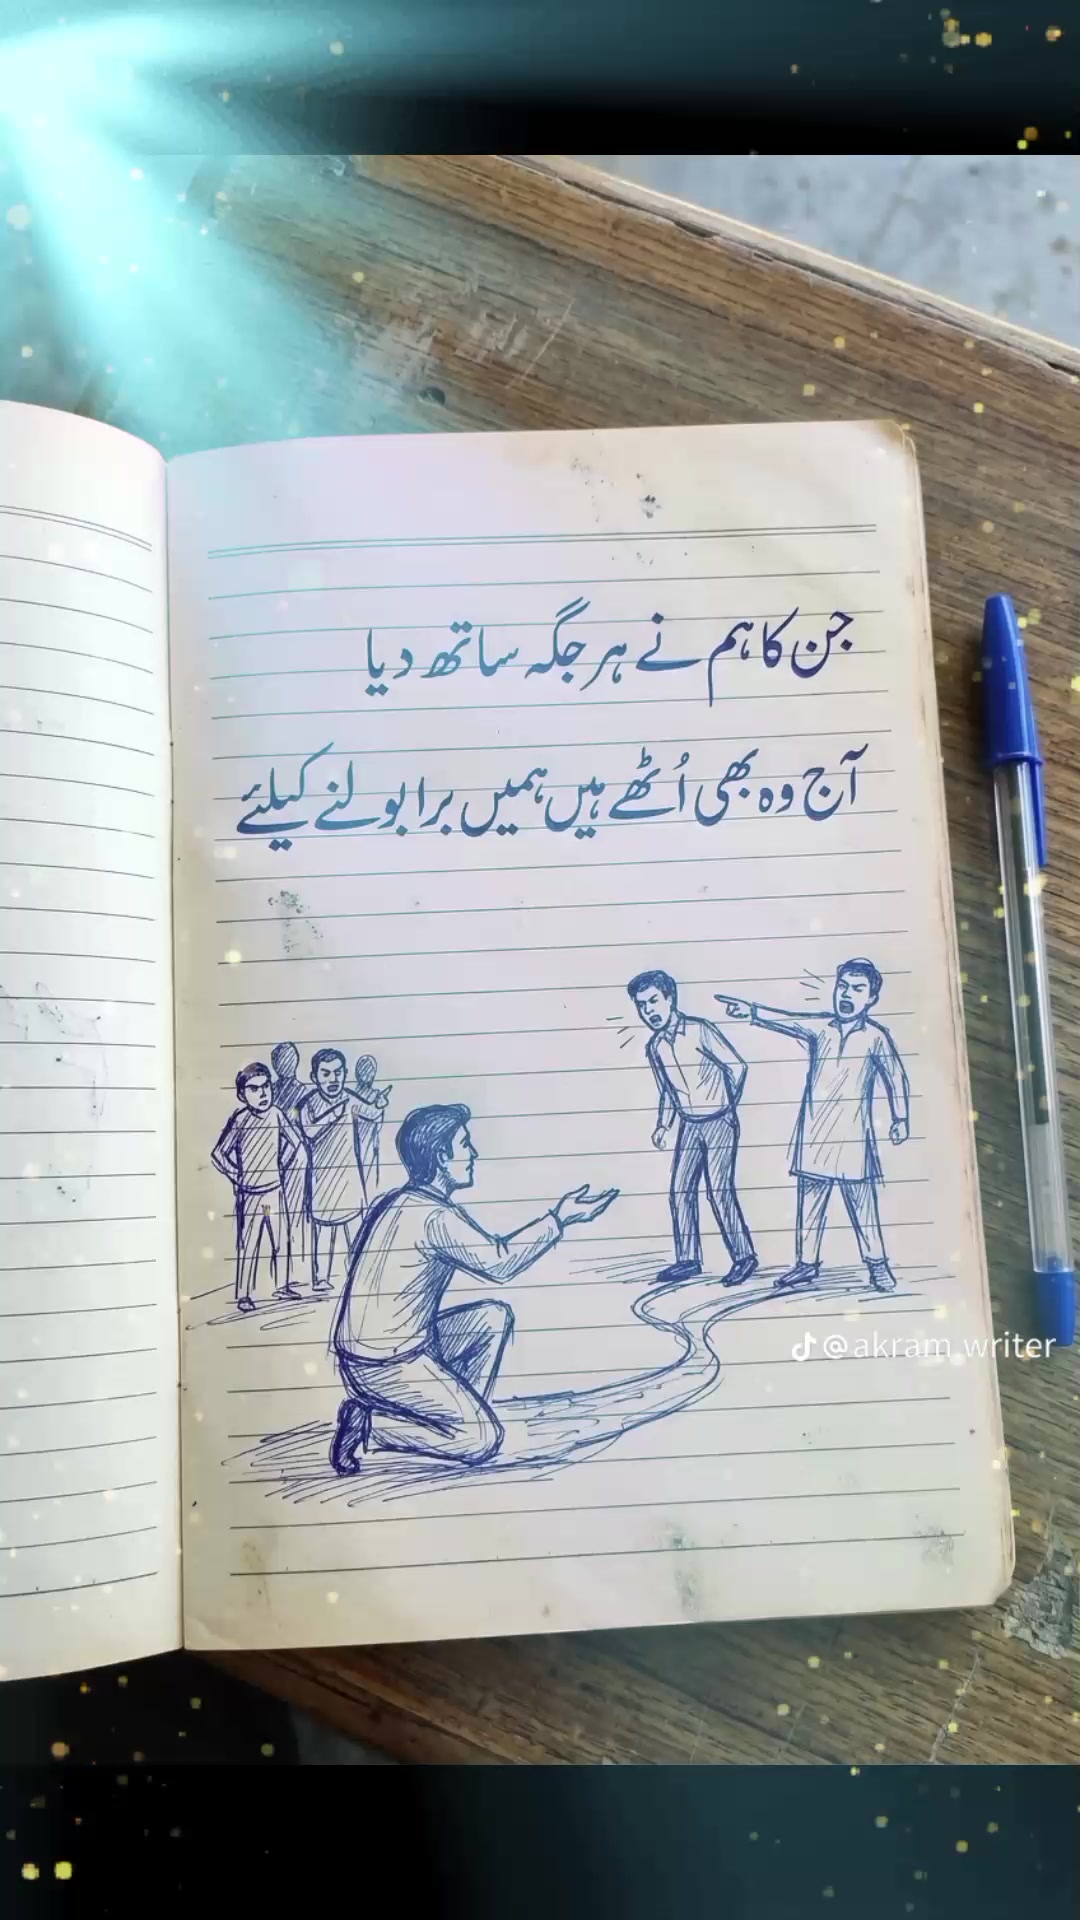 جن کا ہم نے ہر جگہ ساتھ دیا
آج وہ بھی اُٹھے ہیں ہمیں برا بولنے کیلئے
@akram.writer